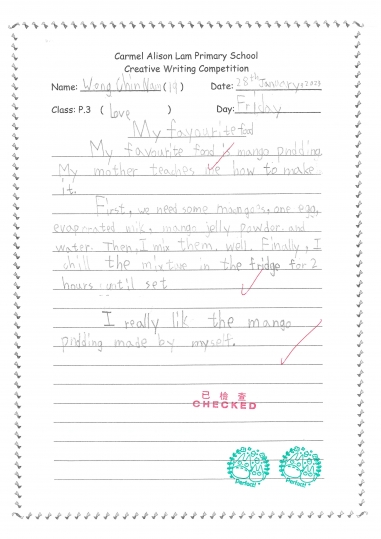 Carmel Alison Lam Primary School
Creative Writing Competition
Name: Wong Chin (19) Date: 28th January,
Class: P.3 ( Love ) Day: Friday
My favourite food
My favourite food is mango pudding.
My mother teaches me how to make
it.
First, we need some mangoes, one egg,
evaporated milk, mango jelly powder and
water. Then, I mix them well. Finally, I
chill the mixture in the fridge for 2
hours until set
I really lik the mango
pudding made by myself.
已 檢 查
CHECKED
perfect! perfect!